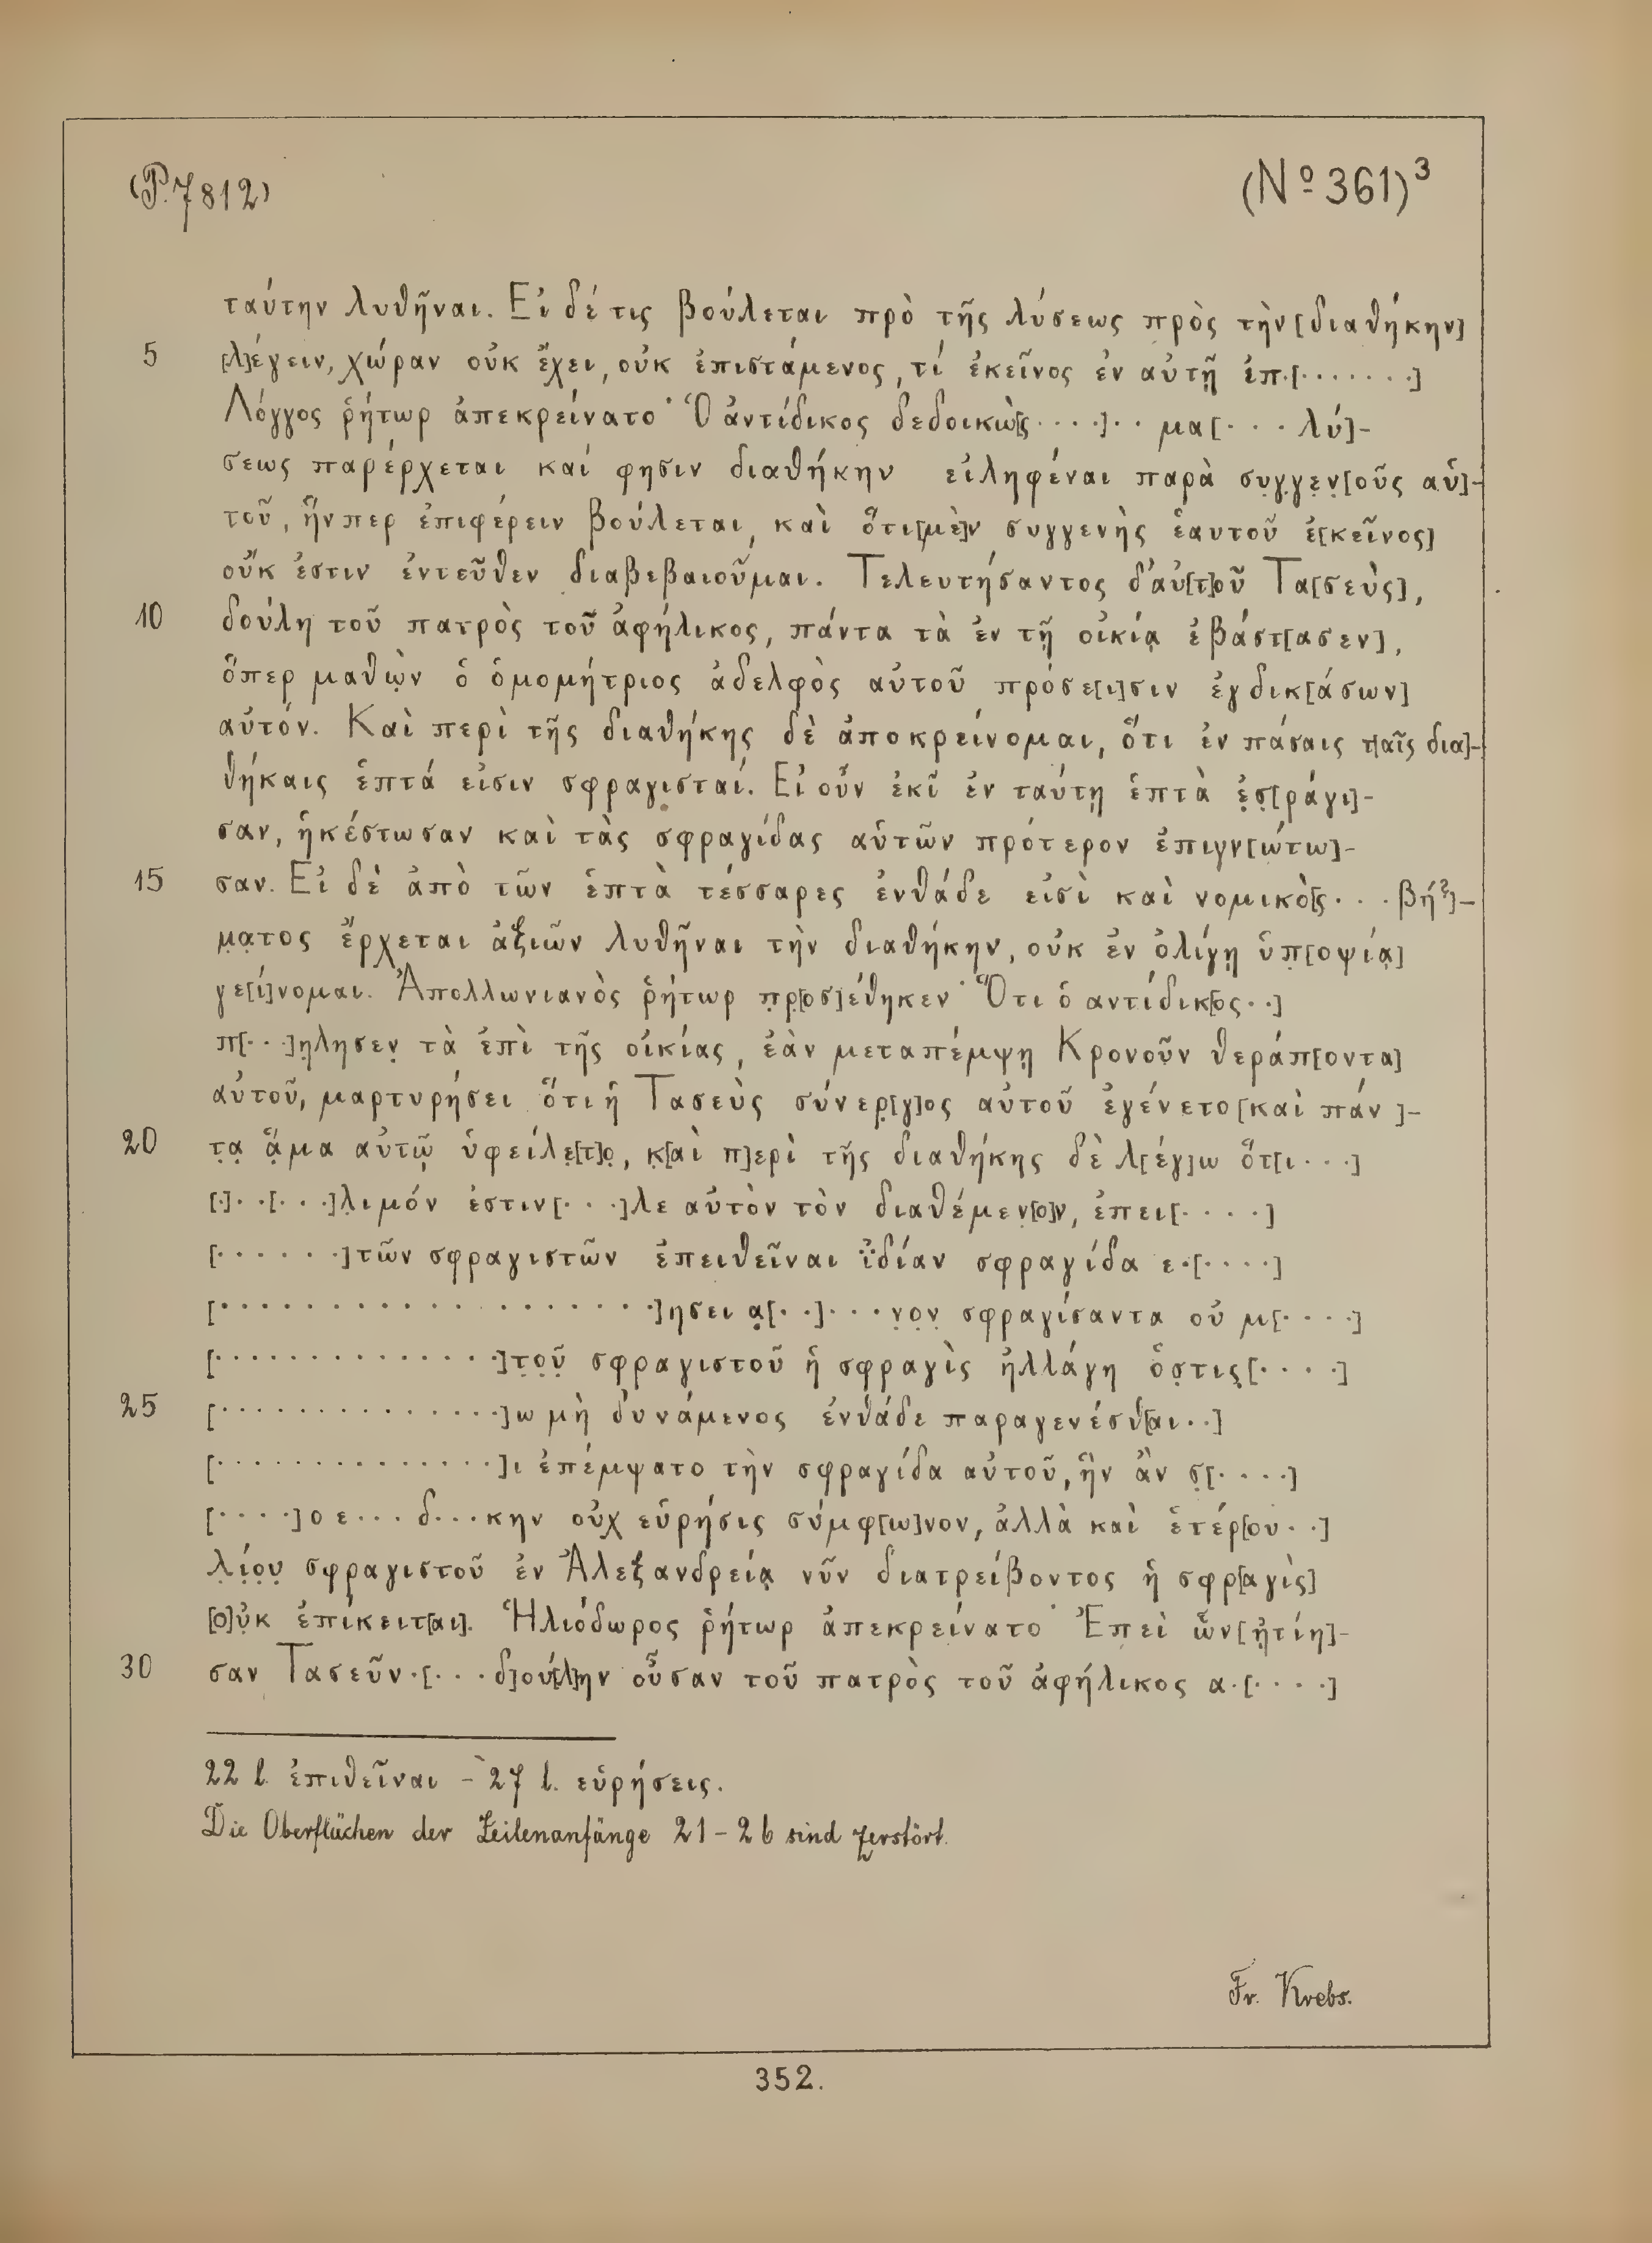 (P. 7812) (Nº 361)³
ταύτην λυθῆναι. Εἰ δέ τις βούλεται πρὸ τῆς λύσεως πρὸς τὴν [διαθήκην]
5 [λ]έγειν, χώραν οὐκ ἔχει, οὐκ ἐπιστάμενος, τί ἐκεῖνος ἐν αὐτῇ ἐπ.[·······]
Λόγγος ῥήτωρ ἀπεκρείνατο· Ὁ ἀντίδικος δεδοικὼ[ς ····]·· μα[··· λύ]-
σεως παρέρχεται καί φησιν διαθήκην εἰληφέναι παρὰ συ̣γ̣γε̣ν̣[οῦς αὑ]-
τοῦ, ἥνπερ ἐπιφέρειν βούλεται, καὶ ὅτι [μὲ]ν συγγενὴς ἑαυτοῦ ἐ[κεῖνος]
οὔκ ἐστιν ἐντεῦθεν διαβεβαιοῦμαι. Τελευτήσαντος δ' αὐ[τ]οῦ Τα[σεὺς],
10 δούλη τοῦ πατρὸς τοῦ ἀφήλικος, πάντα τὰ ἐν τῇ οἰκίᾳ ἐβάστ[ασεν],
ὅπερ μαθὼ̣ν ὁ ὁμομήτριος ἀδελφὸς αὐτοῦ πρόσε[ι]σιν ἐγδικ[άσων]
αὐτόν. Καὶ περὶ τῆς διαθήκης δὲ ἀποκρείνομαι, ὅτι ἐν πάσαις τ[αῖς δια]-
θήκαις ἑπτά εἰσιν σφραγισταί. Εἰ οὖν ἐκῖ ἐν ταύτῃ ἑπτὰ ἐ̣σ̣[ράγι]-
σαν, ἡκέστωσαν καὶ τὰς σφραγίδας αὑτῶν πρότερον ἐπιγν[ώτω]-
15 σαν. Εἰ δὲ ἀπὸ τῶν ἑπτὰ τέσσαρες ἐνθάδε εἰσὶ καὶ νομικὸ[ς ··· βή?]-
μ̣α̣τος ἔρχεται ἀξιῶν λυθῆναι τὴν διαθήκην, οὐκ ἐν ὀλίγῃ ὑπ̣[οψίᾳ]
γε[ί]νομαι. Ἀπολλωνιανὸς ῥήτωρ π̣ρ̣[οσ]έθηκεν· Ὅτι ὁ αντίδικ[ος ··]
π[···]η̣λησεν̣ τὰ ἐπὶ τῆς οἰκίας, ἐὰν μεταπέμψῃ Κρονοῦν θεράπ[οντα]
αὐτοῦ, μαρτυρήσει ὅτι ἡ Τασεὺς σύνερ[γ]ος αὐτοῦ ἐγένετο [καὶ πάν]-
20 τ̣α̣ ἅ̣μα αὐτῷ ὑφείλε̣[τ]ο̣, κ̣[αὶ π]ερὶ τῆς διαθήκης δὲ λ[έγ]ω ὅτ[ι ···]
[·]··[···]λ̣ιμόν ἐστιν[···]λε αὐτὸν τὸν διαθέμεν̣[ο]ν, ἐπει[····]
[······]τῶν σφραγιστῶν ἐπειθεῖναι ἰ̈δίαν σφραγίδα ε·[····]
[··················]ησει α̣[··]···ν̣ο̣ν̣ σφραγίσαντα οὐ μ[····]
[··············]τ̣ο̣ῦ̣ σφραγιστοῦ ἡ σφραγὶς ἠλλάγη ὅσ̣τις̣[····]
25 [··············]ω μὴ δυνάμενος ἐνθάδε παραγενέσθ[αι ··]
[··············]ι ἐπέμψατο τὴν σφραγίδα αὐτοῦ, ἣν ἂν σ̣[····]
[····]ο ε··· δ···κην οὐχ εὑρήσις σύμφ[ω]νον, ἀλλὰ καὶ ἑτέρ[ου ··]
λ̣ί̣ο̣υ̣ σφραγιστοῦ ἐν Ἀλεξανδρείᾳ νῦν διατρείβοντος ἡ σφρ[αγὶς]
[ο]ὐ̣κ ἐπίκειτ[αι]. Ἡλιόδωρος ῥήτωρ ἀπεκρείνατο· Ἐπεὶ ὧν [ᾐτίη]-
30 σαν Τασεῦν·[··· δ]ού[λ]ην οὖσαν τοῦ πατρὸς τοῦ ἀφήλικος α·[····]
22 l. ἐπιθεῖναι - 27 l. εὑρήσεις.
Die Oberflächen der Zeilenanfänge 21-26 sind zerstört.
Fr. Krebs.
352.